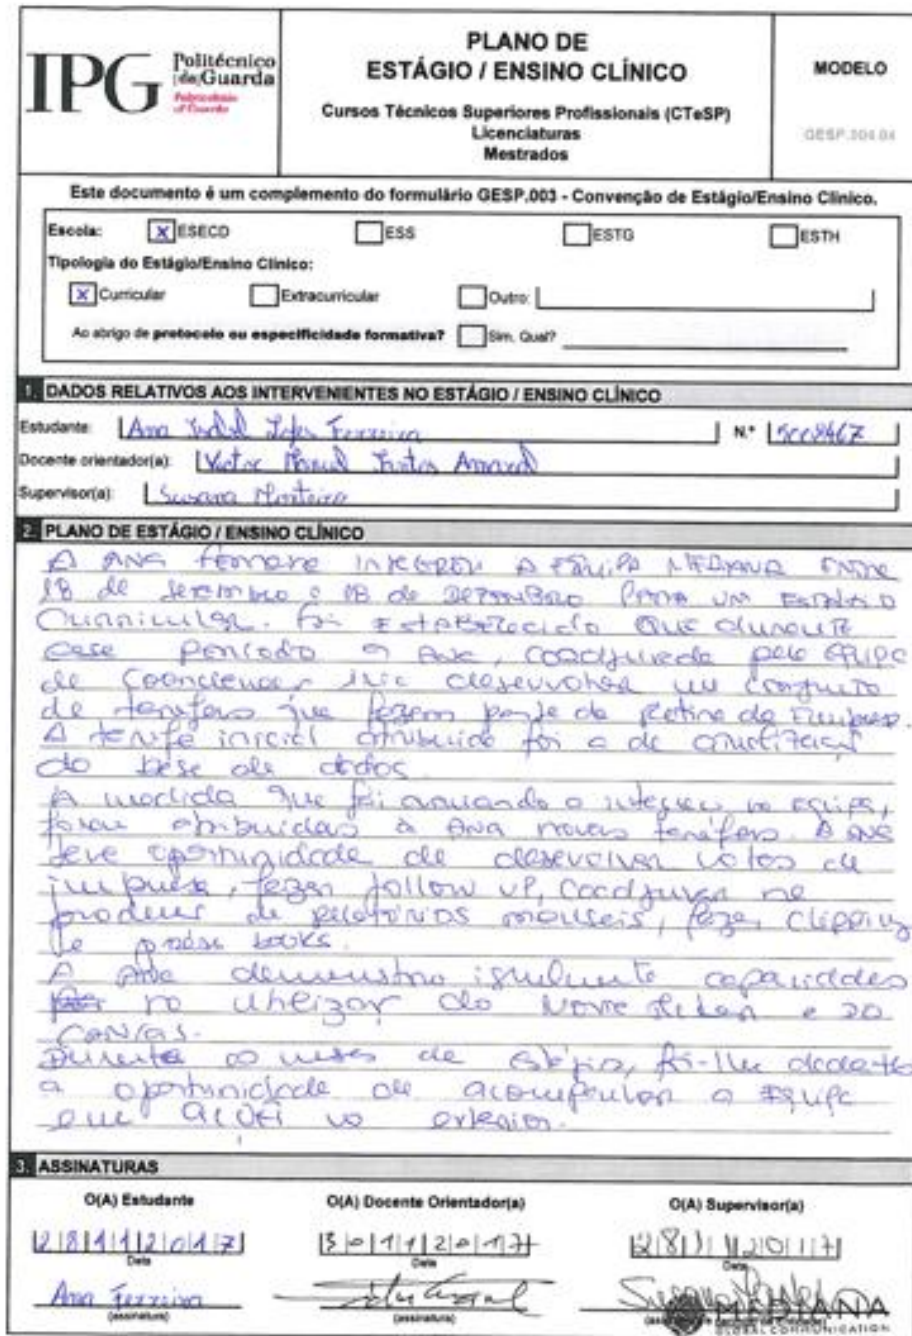 IPG Politécnico da Guarda
Polytechnic of Guarda
PLANO DE
ESTÁGIO / ENSINO CLÍNICO
Cursos Técnicos Superiores Profissionais (CTeSP)
Licenciaturas
Mestrados
MODELO
GESP.004.04
Este documento é um complemento do formulário GESP.003 - Convenção de Estágio/Ensino Clínico.
Escola: X ESECD ESS ESTG ESTH
Tipologia do Estágio/Ensino Clínico:
X Curricular Extracurricular Outro:
Ao abrigo de protocolo ou especificidade formativa? Sim. Qual?
1. DADOS RELATIVOS AOS INTERVENIENTES NO ESTÁGIO / ENSINO CLÍNICO
Estudante: Ana Isabel Lopes Ferreira N.º 5008467
Docente orientador(a): Victor Manuel Santos Amaral
Supervisor(a): Susana Monteiro
2. PLANO DE ESTÁGIO / ENSINO CLÍNICO
A ANA Ferreira integrou A EQUIPA MEDIANA ENTRE
18 de setembro e 18 de DEZEMBRO PARA UM ESTÁGIO
Curricular. Foi EstABELecido QUE durante
esse período a Ana, coadjuvada pela equipa
de Coordenação iria desenvolver um conjunto
de tarefas que fazem parte da Rotina da Empresa.
A tarefa inicial atribuída foi a de atualização
da base de dados.
A medida que foi avançando a integração na equipa,
foram atribuídas à Ana novas tarefas. A Ana
teve oportunidade de desenvolver notas de
imprensa, fazer follow up, coadjuvar na
produção de relatórios mensais, fazer clipping
e press books.
A Ana demonstrou igualmente capacidades
na utilização do
Canvas.
Durante os meses de estágio, foi-lhe
a oportunidade de acompanhar a Equipa
em ações no exterior.
3. ASSINATURAS
O(A) Estudante O(A) Docente Orientador(a) O(A) Supervisor(a)
28112017 30112017 28112017
Data Data Data
Ana Ferreira
(assinatura) (assinatura)
MEDIANA
GLOBAL COMMUNICATION